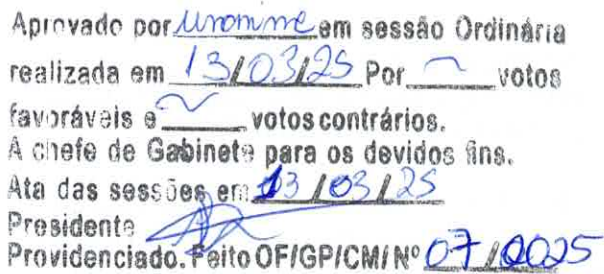 Aprovado por unanime em sessão Ordinária
realizada em 13/03/25 Por ~ votos
favoráveis e ~ votos contrários.
A chefe de Gabinete para os devidos fins.
Ata das sessões em 13/03/25
Presidente
Providenciado. Feito OF/GP/CM/Nº 07/2025